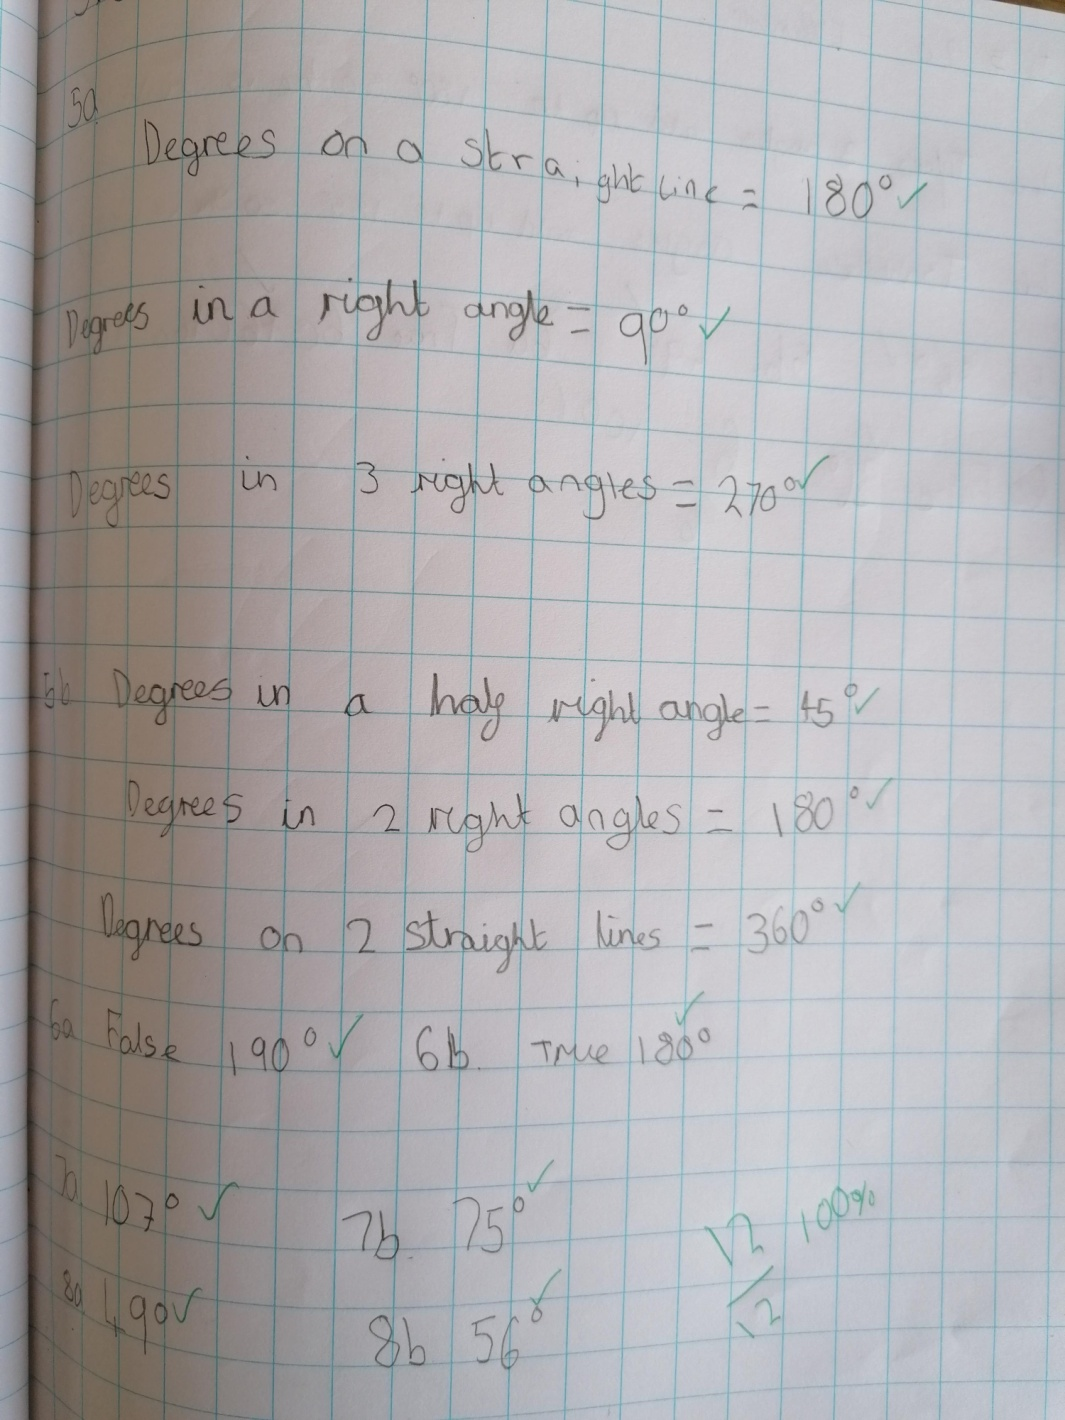 5a
Degrees on a straight line = 180° ✓
Degrees in a right angle = 90° ✓
Degrees in 3 right angles = 270° ✓
5b Degrees in a half right angle = 45° ✓
Degrees in 2 right angles = 180° ✓
Degrees on 2 straight lines = 360° ✓
6a False 190° ✓ 6b. True 180° ✓
7a 107° ✓ 7b. 75° ✓
12/12 100%
8a 49° ✓ 8b 56° ✓